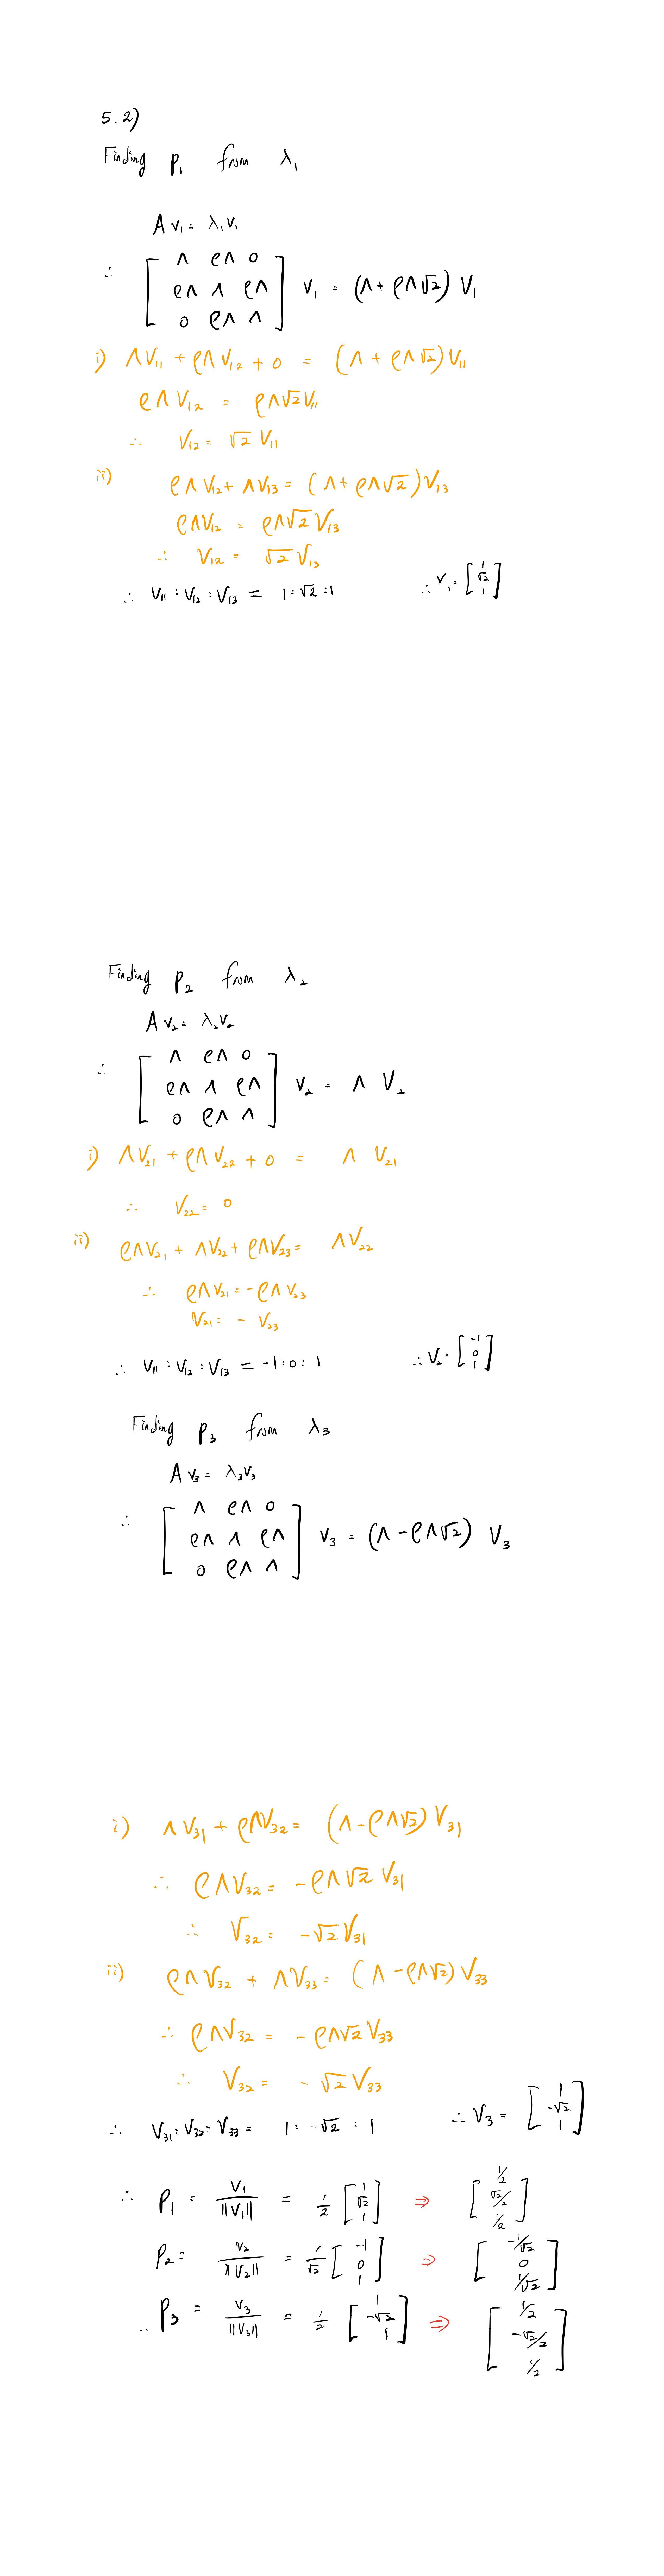 5.2)
Finding P₁ from λ₁
A v₁ = λ₁v₁
∴ [ Λ ρΛ 0
ρΛ Λ ρΛ
0 ρΛ Λ ] v₁ = (Λ + ρΛ√2) V₁
i) ΛV₁₁ + ρΛV₁₂ + 0 = (Λ + ρΛ√2)V₁₁
ρΛV₁₂ = ρΛ√2V₁₁
∴ V₁₂ = √2 V₁₁
ii) ρΛV₁₂ + ΛV₁₃ = (Λ + ρΛ√2)V₁₃
ρΛV₁₂ = ρΛ√2V₁₃
∴ V₁₂ = √2V₁₃
∴ V₁₁ : V₁₂ : V₁₃ = 1 : √2 : 1 ∴ V₁ = [ 1 √2 1 ]
Finding P₂ from λ₂
A v₂ = λ₂v₂
∴ [ Λ ρΛ 0
ρΛ Λ ρΛ
0 ρΛ Λ ] v₂ = Λ V₂
i) ΛV₂₁ + ρΛV₂₂ + 0 = Λ V₂₁
∴ V₂₂ = 0
ii) ρΛV₂₁ + ΛV₂₂ + ρΛV₂₃ = ΛV₂₂
∴ ρΛV₂₁ = -ρΛV₂₃
V₂₁ = - V₂₃
∴ V₁₁ : V₁₂ : V₁₃ = -1 : 0 : 1 ∴ V₂ = [ -1 0 1 ]
Finding P₃ from λ₃
A v₃ = λ₃v₃
∴ [ Λ ρΛ 0
ρΛ Λ ρΛ
0 ρΛ Λ ] v₃ = (Λ - ρΛ√2) V₃
i) ΛV₃₁ + ρΛV₃₂ = (Λ - ρΛ√2)V₃₁
∴ ρΛV₃₂ = -ρΛ√2 V₃₁
∴ V₃₂ = -√2V₃₁
ii) ρΛV₃₂ + ΛV₃₃ = (Λ - ρΛ√2)V₃₃
∴ ρΛV₃₂ = -ρΛ√2V₃₃
∴ V₃₂ = -√2V₃₃
∴ V₃₁ : V₃₂ : V₃₃ = 1 : -√2 : 1 ∴ V₃ = [ 1 -√2 1 ]
∴ P₁ = V₁/||V₁|| = 1/2 [ 1 √2 1 ] ⇒ [ 1/2 √2/2 1/2 ]
P₂ = V₂/||V₂|| = 1/√2 [ -1 0 1 ] ⇒ [ -1/√2 0 1/√2 ]
∴ P₃ = V₃/||V₃|| = 1/2 [ 1 -√2 1 ] ⇒ [ 1/2 -√2/2 1/2 ]